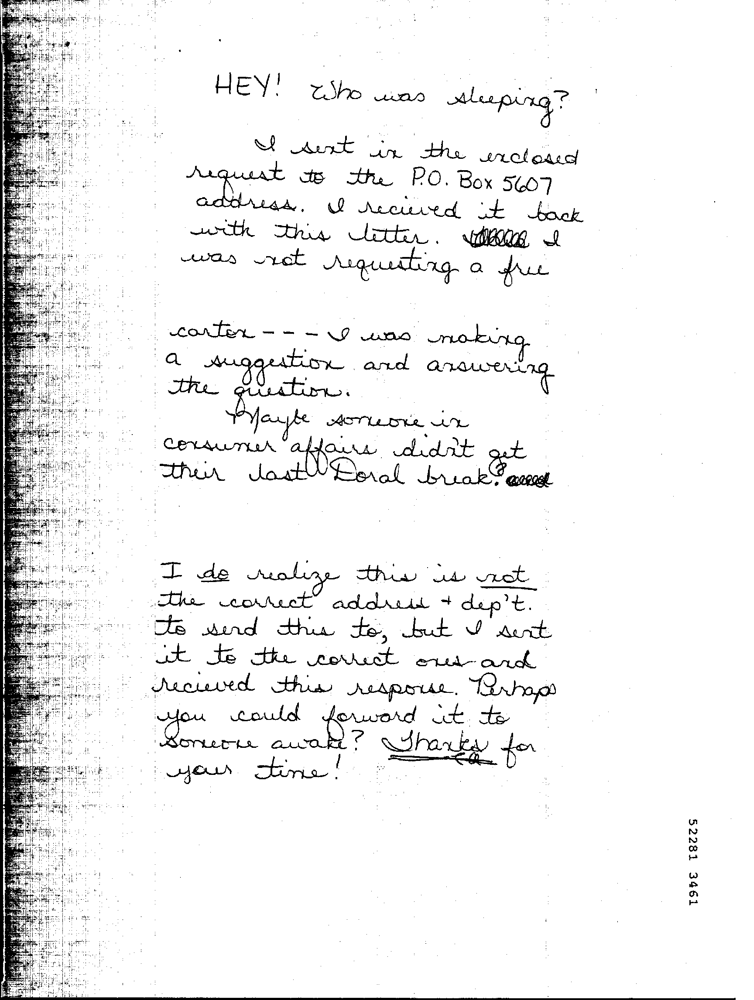 HEY! Who was sleeping?
I sent in the enclosed
request to the P.O. Box 5607
address. I recieved it back
with this letter. I
was not requesting a free
carton --- I was making
a suggestion and answering
the question.
Maybe someone in
consumer affairs didn't get
their last Doral break?
I do realize this is not
the correct address + dep't.
to send this to, but I sent
it to the correct ones and
recieved this response. Perhaps
you could forward it to
someone awake? Thanks for
your time!
52281 3461